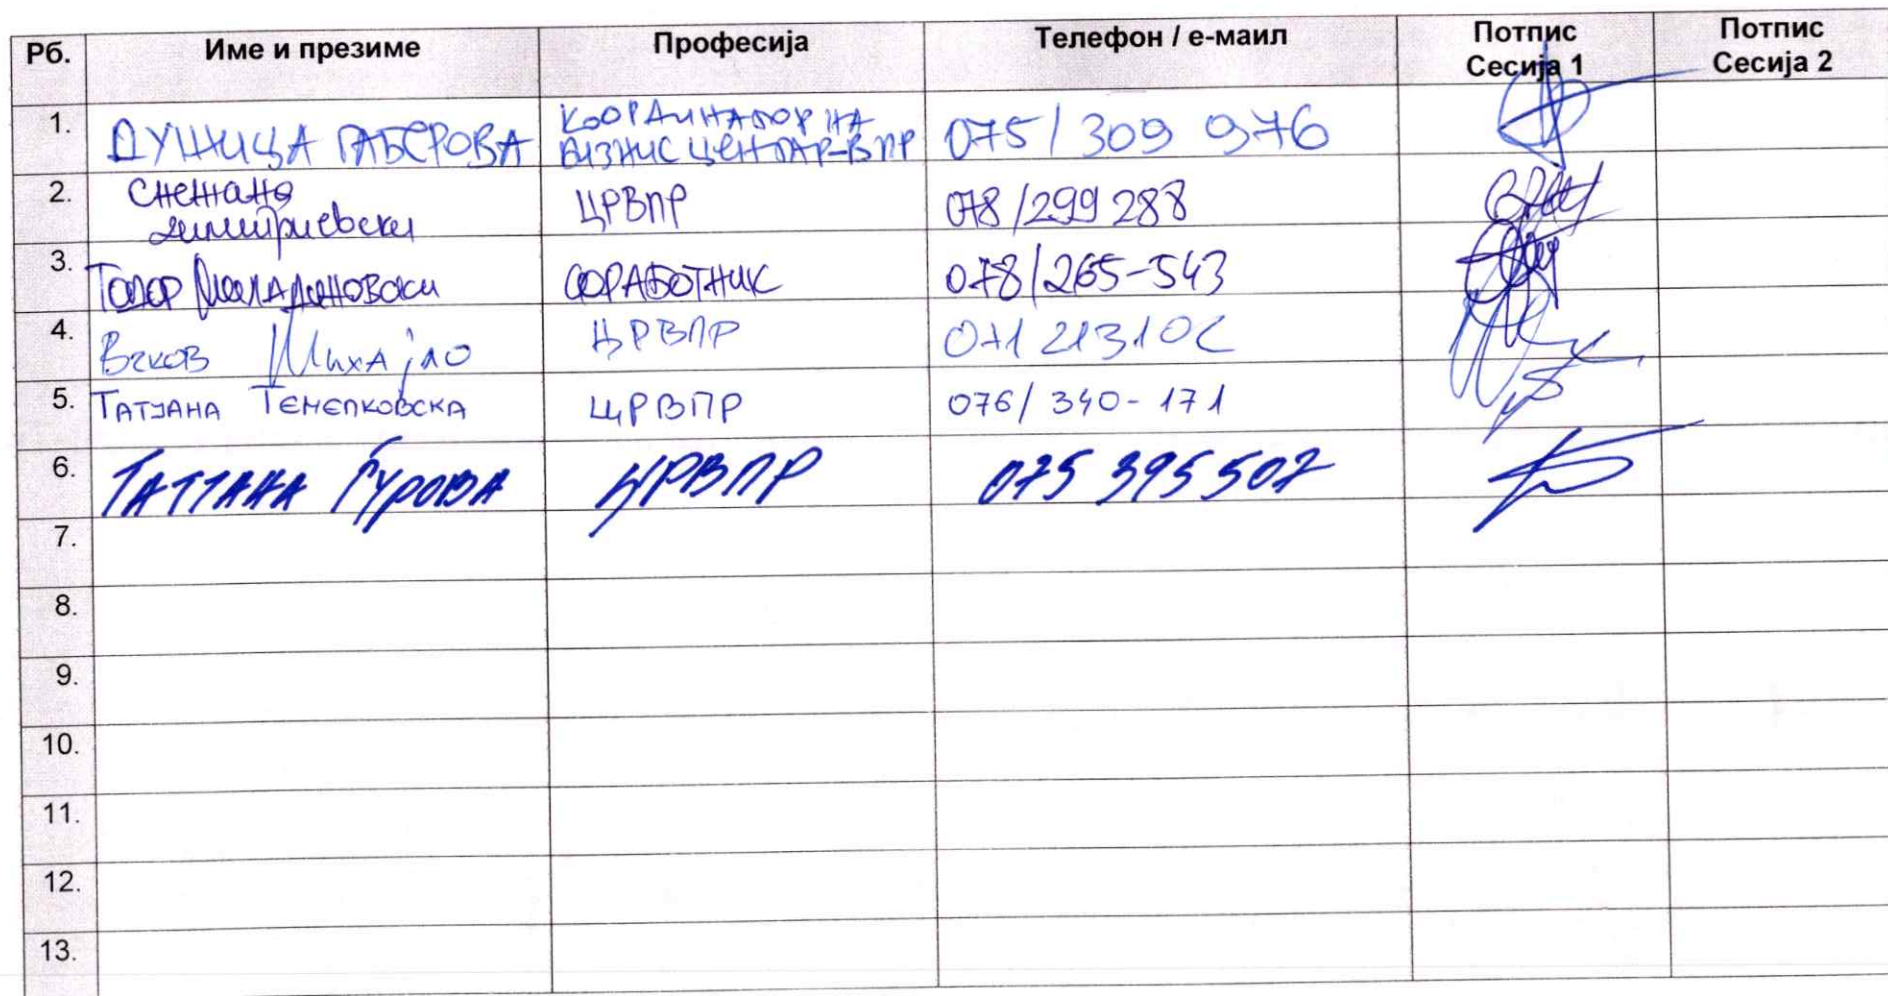 Рб. Име и презиме Професија Телефон / е-маил Потпис Сесија 1 Потпис Сесија 2
1. ГАБЕРОВА КООРДИНАТОР НА
БИЗНИС ЦЕНТАР-ВПР 075/309 976
2. Снежана
Димитриевски ЦРВПР 078/299 288
3. Тодор Младеновски СОРАБОТНИК 078/265-543
4. Михајло ЦРВПР 071 213102
5. ТАТЈАНА ТЕМЕЛКОВСКА ЦРВПР 076/340-171
6. ТАТЈАНА ЃУРОВА ЦРВПР 075 395 507
7.
8.
9.
10.
11.
12.
13.